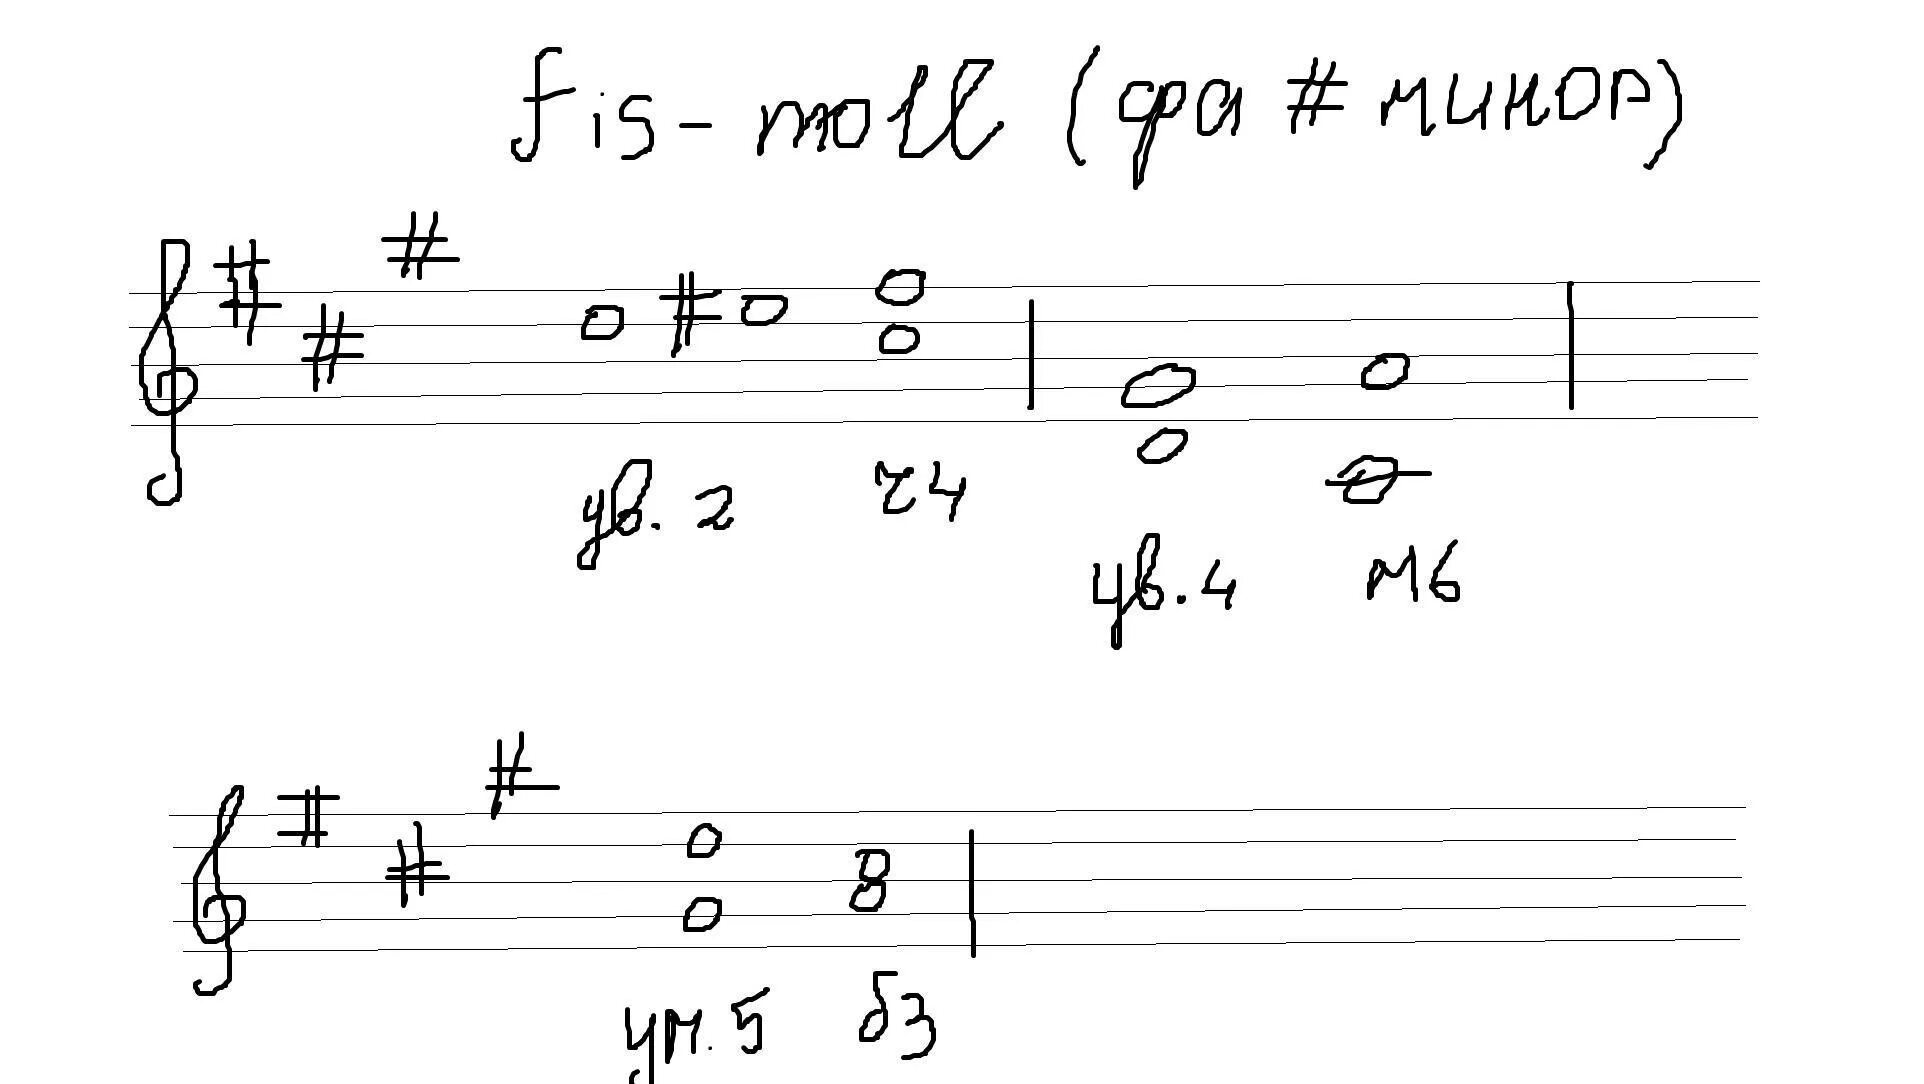 fis-moll (фа # минор)
ув. 2 ч4
ув.4 м6
ум.5 б3